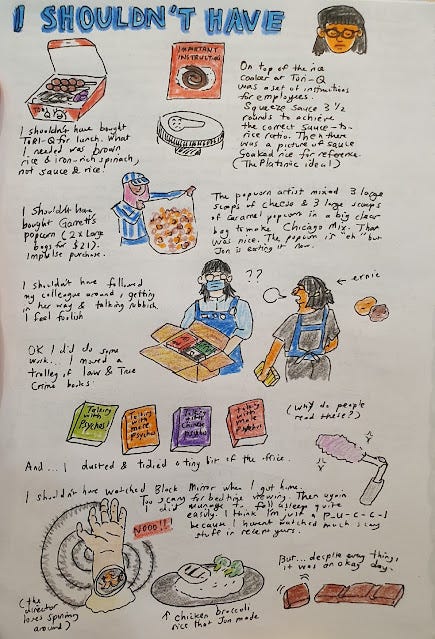 I SHOULDN'T HAVE
I shouldn't have bought
TORI-Q for lunch. What
I needed was brown
rice & iron-rich spinach,
not sauce & rice!
IMPORTANT
INSTRUCTION
On top of the rice
cooker at Tori-Q
was a set of instructions
for employees.
Squeeze sauce 3 1/2
rounds to achieve
the correct sauce-to-
rice ratio. Then there
was a picture of sauce
soaked rice for reference.
(The Platonic ideal)
I shouldn't have
bought Garrett's
popcorn (2 x large
bags for $21).
Impulse purchase.
The popcorn artist mixed 3 large
scoops of cheese & 3 large scoops
of caramel popcorn in a big clear
bag to make Chicago Mix. That
was nice. The popcorn is "eh" but
Jon is eating it now.
I shouldn't have followed
my colleague around, getting
in her way & talking rubbish.
I feel foolish
??
ernie
OK I did do some
work.. I moved a
trolley of law & True
Crime books.
Talking
with
Psychos
Talking
with more
Psychos
Talking
with Chinese
Psychos
Talking
with male
Psychos
(why do people
read these?)
And... I dusted & tidied a tiny bit of the office.
I shouldn't have watched Black Mirror when I got home.
Too scary for bedtime viewing. Then again
I did manage to fall asleep quite
easily. I think I'm just a P-U-C-C-I
because I haven't watched much scary
stuff in recent years.
NOOO!!
(the
director
loves spinning
around)
↑ chicken broccoli
rice that Jon made
But... despite everything,
it was an okay day.